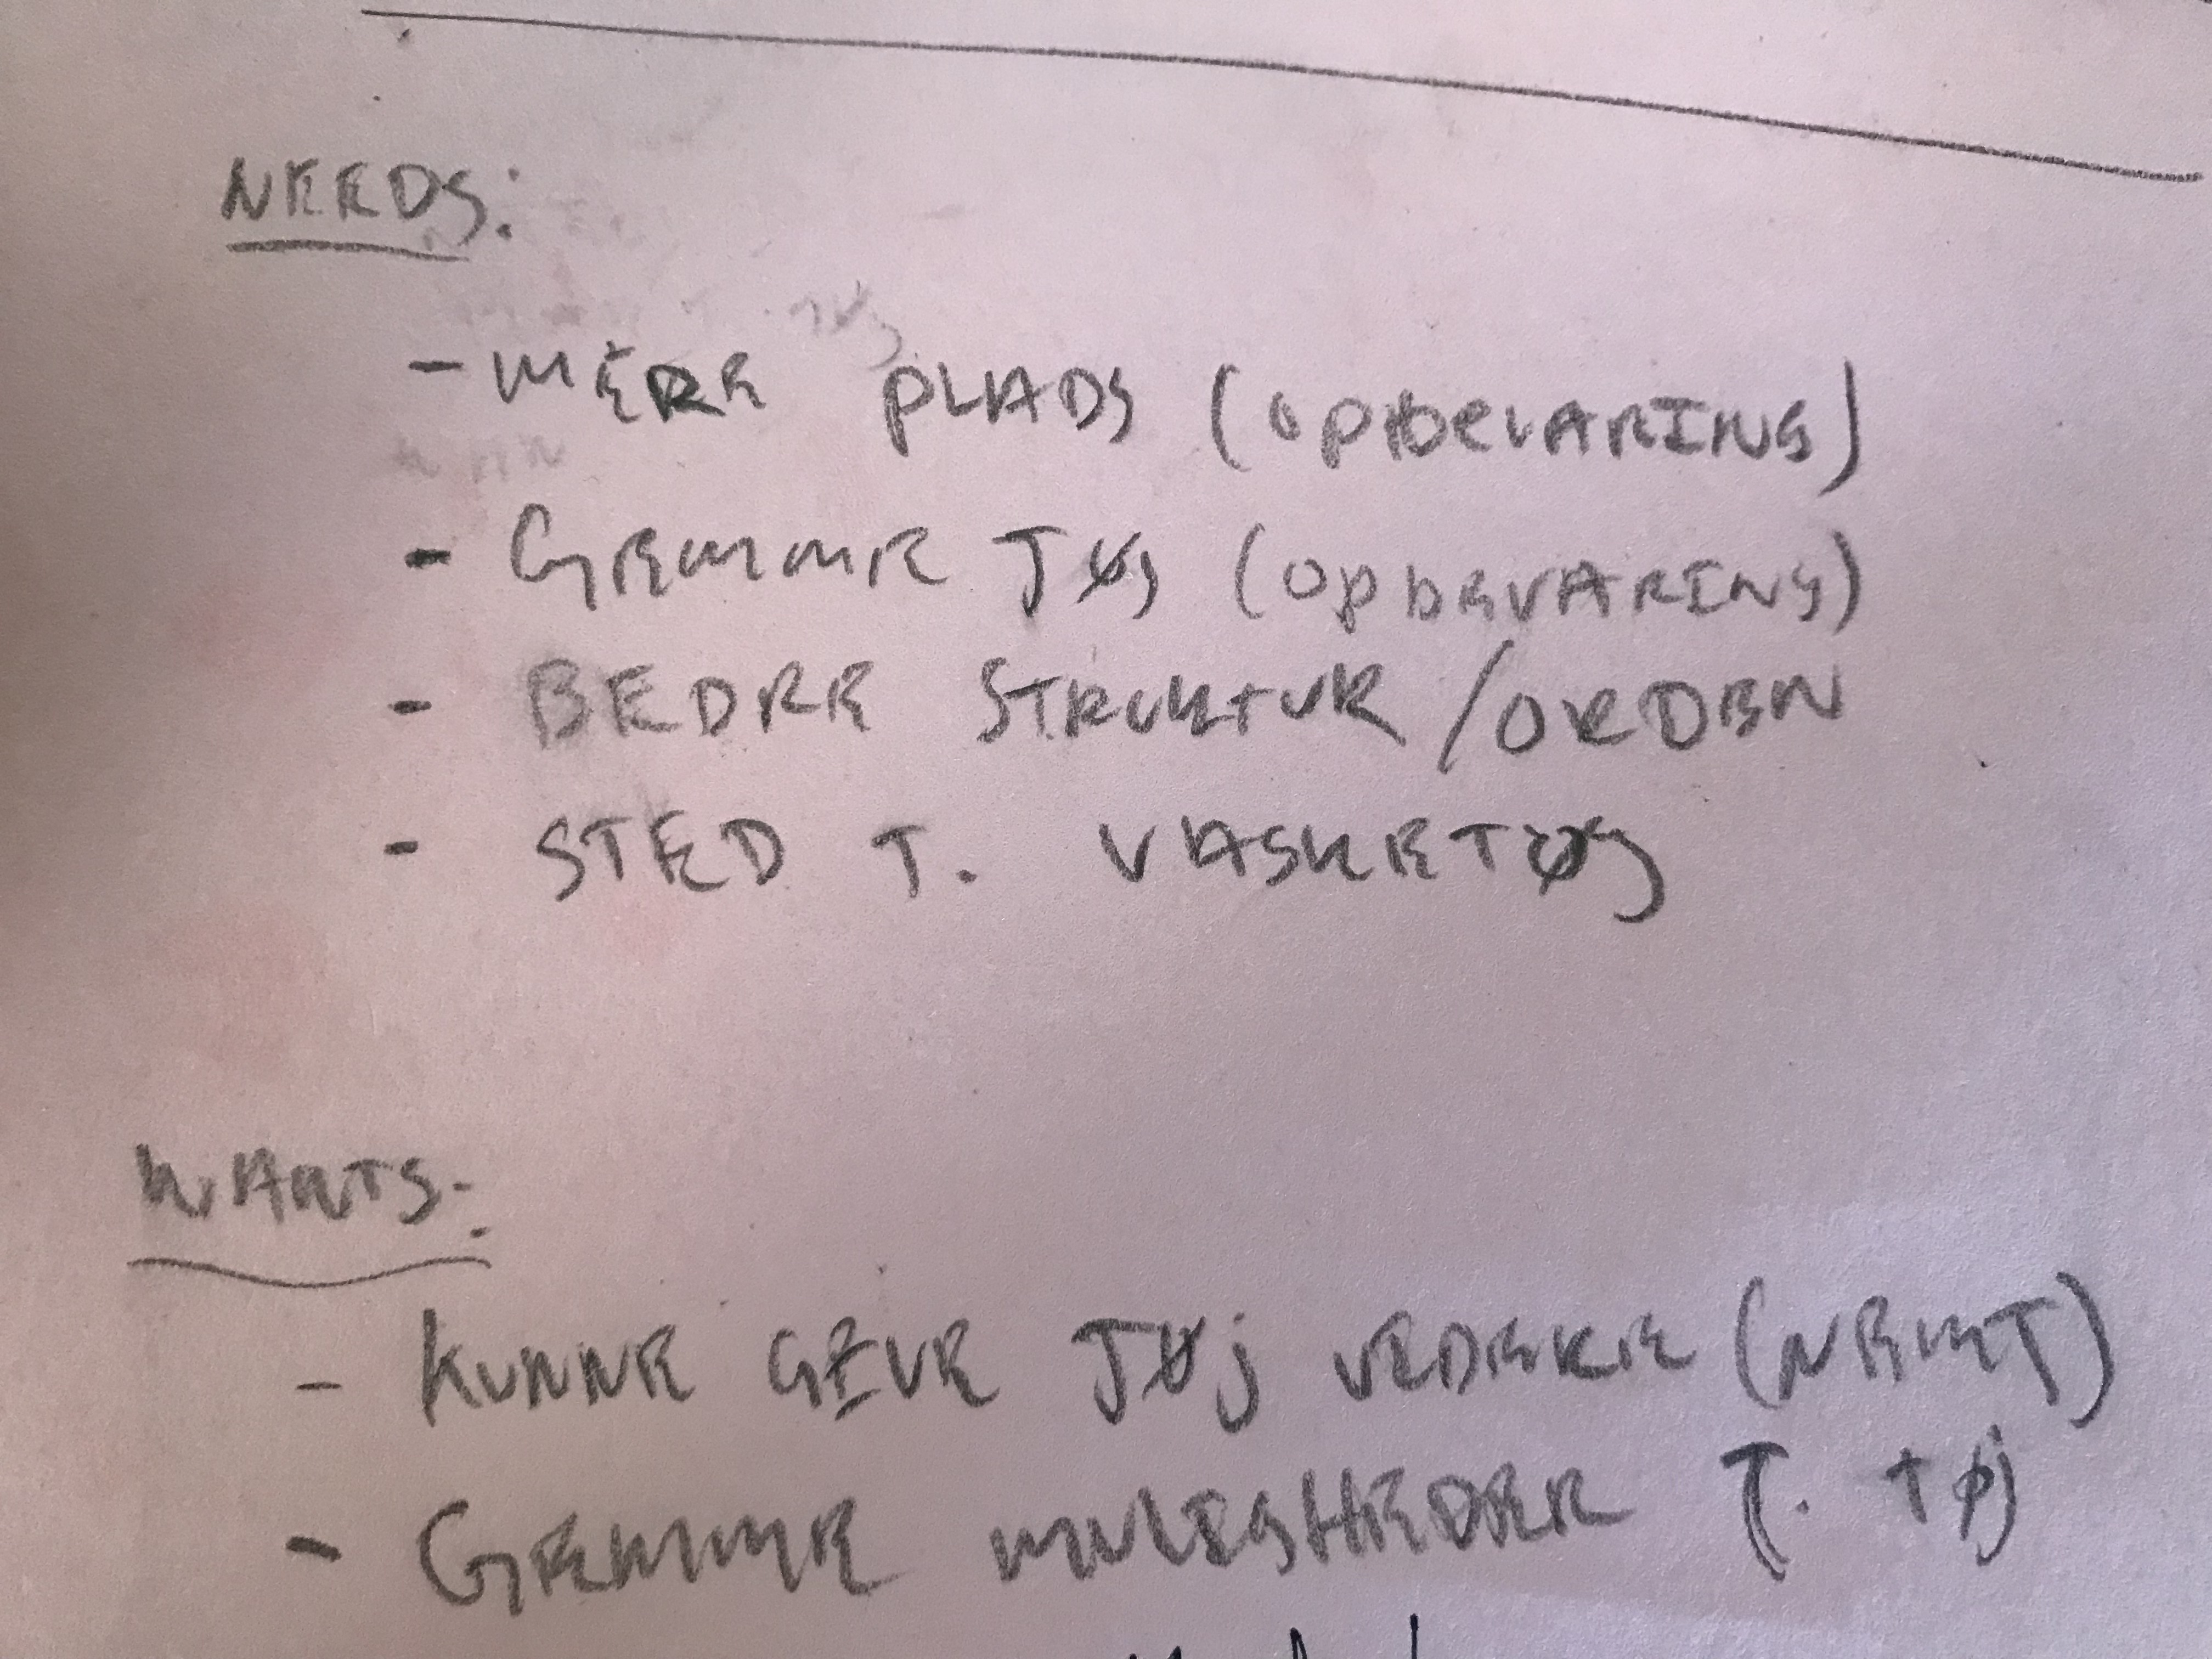 NEEDS:
- MERE PLADS (OPBEVARING)
- GEMME TØJ (OPBEVARING)
- BEDRE STRUKTUR / ORDEN
- STED T. VASKETØJ
WANTS:
- KUNNE GIVE TØJ VIDERE (NEMT)
- GEMME MULIGHEDER T. TØJ